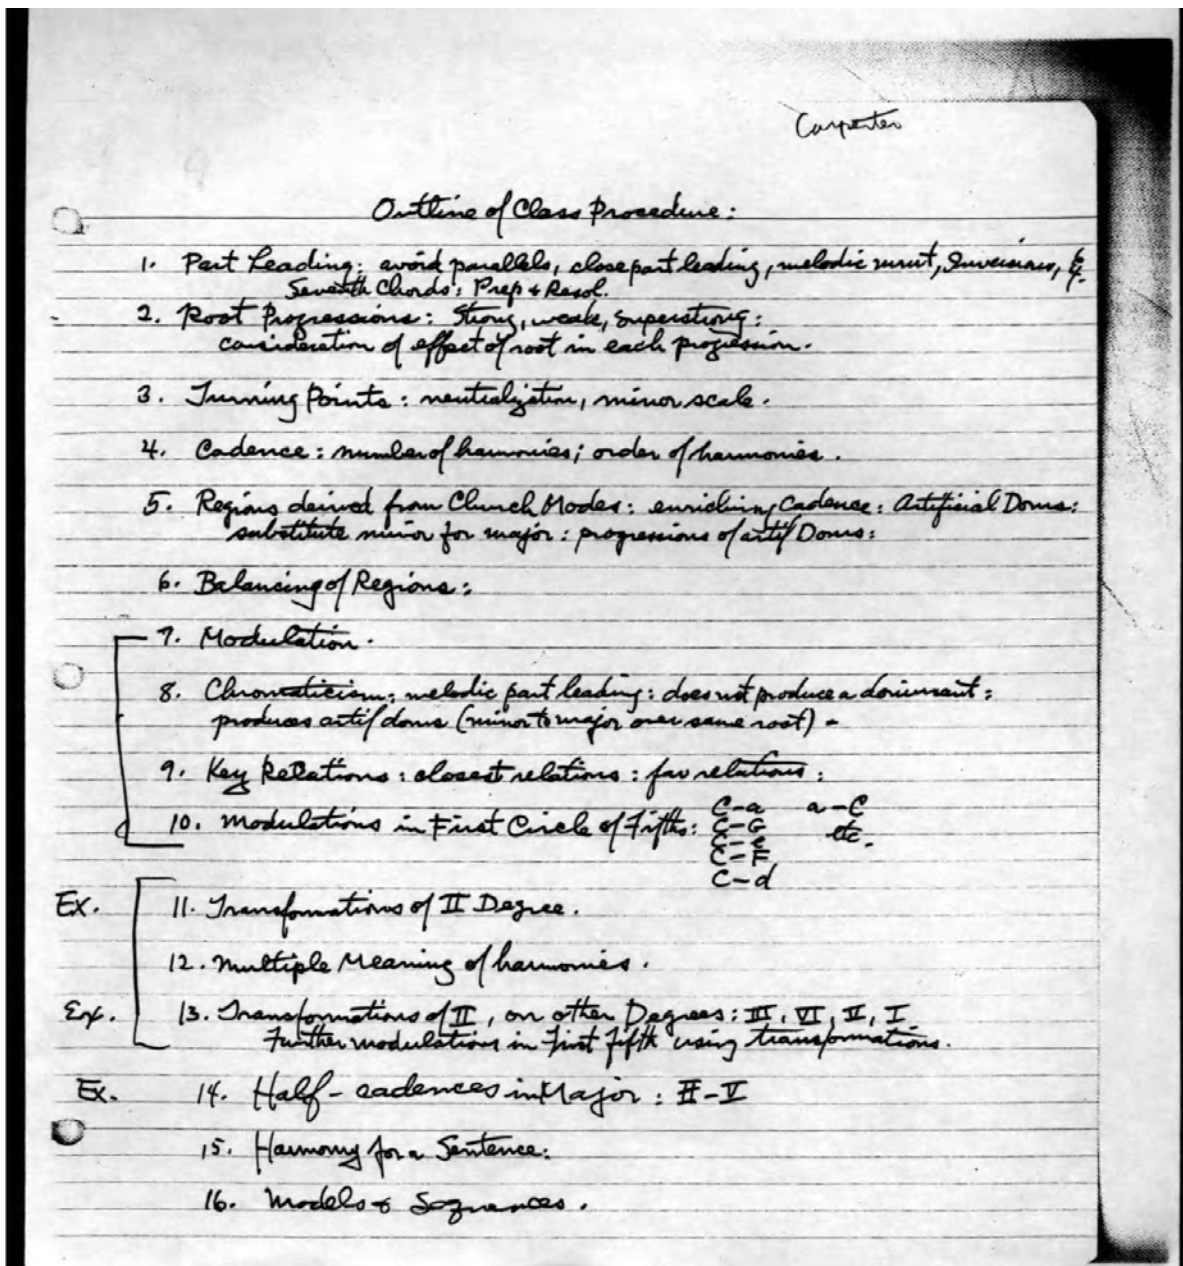 Carpenter
Outline of Class Procedure:
1. Part Leading: avoid parallels, close part leading, melodic unit, Inversions, 6/4.
Seventh Chords: Prep & Resol.
2. Root Progressions: Strong, weak, superstrong:
consideration of effect of root in each progression.
3. Turning Points: neutralization, minor scale.
4. Cadence: number of harmonies; order of harmonies.
5. Regions derived from Church Modes: enriching Cadence: Artificial Doms:
substitute minor for major: progressions of artif Doms:
6. Balancing of Regions:
7. Modulation.
8. Chromaticism: melodic part leading: does not produce a dominant:
produces artif doms (minor to major over same root) -
9. Key Relations: closest relations: far relations:
10. Modulations in First Circle of Fifths: C-a a-C
C-G etc.
C-e
C-F
C-d
Ex. 11. Transformations of II Degree.
12. Multiple Meaning of harmonies.
Ex. 13. Transformations of II, on other Degrees: III, VI, I
Further modulations in First fifth using transformations.
Ex. 14. Half-cadences in Major: II-V
15. Harmony for a Sentence:
16. Models & Sequences.